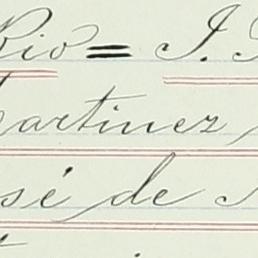 Rio = J.
artinez
sé de